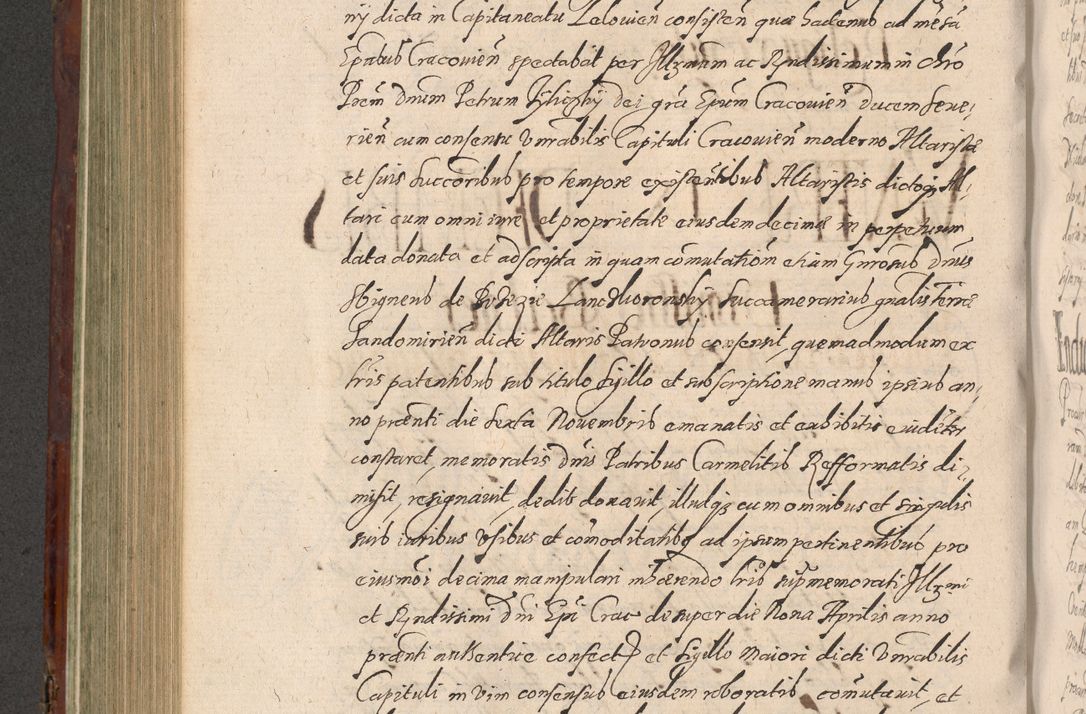 nÿ dicta in Capitaneatu Lelouien̄ consisten̄ quæ hactenus ad mēsā
Ep̄atus Cracouien̄ spectabat per Illr̄mum ac Rndissimum in chr̄o
Prem̄ Dnum Petrum Tÿlicki Dei gr̄a Ep̄um Cracouien̄ Ducem Seue-
rien̄ cum consensu Vnrabilis Capituli Cracouien̄ moderno Altaristæ
et suis succoribus pro tempore existen̄tibus Altaristis dictoq Al-
tari cum omni iure et proprietate eiusdem decimæ in perpetuum
data donata et adscripta in quam com̄utation̄ etiam Gnrosus Dnus
Sbigneus de Brzezie Lanczkoronskÿ Succamerarius gnalis Terræ
Sandomirien̄ dicti Altaris Patronus consensit, quemadmodum ex
lris patentibus sub titulo sigillo et subscriptione manus ipsius an-
no præn̄ti die Sexta Nouembris emanatis et exhibitis euiden̄tr
constaret, memoratis Dnis Patribus Carmelitis Refformatis di-
misit, resignauit, dedit donauit, illudq cum omnibus et singulis
suis iuribus vsibus et com̄oditatibq ad ipsum pertinentibus pro
eiusmōi decima manipulari inhærendo lris suprmemorati Illr̄mi
et Rndissimi Dni Ep̄i Crac desuper die Nona Aprilis anno
præn̄ti authentice confect et sigillo maiori dicti Vnrabilis
Capituli in vim consensus eiusdem roboratis com̄utauit, et